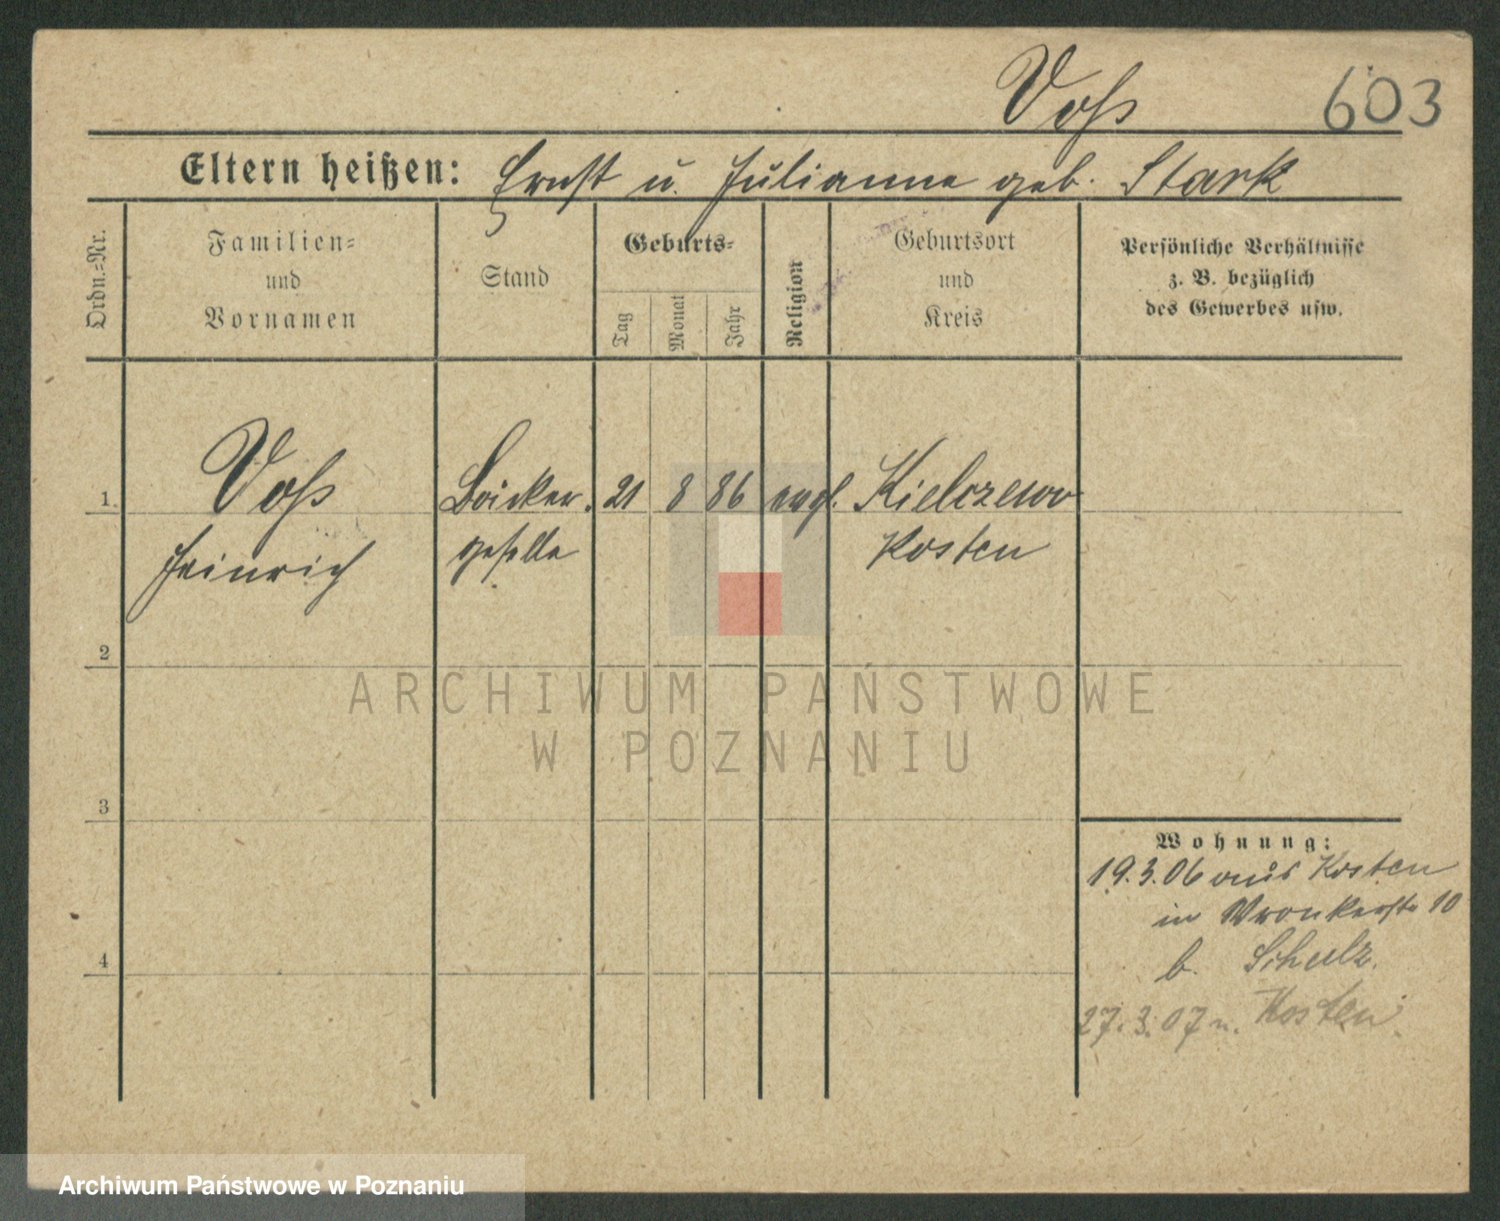 Voß 603
Eltern heißen: Ernst u. Julianne geb. Stark
Ordn.=Nr.
Familien=
und
Vornamen
Stand
Geburts=
Tag
Monat
Jahr
Religion
Geburtsort
und
Kreis
Persönliche Verhältnisse
z. B. bezüglich
des Gewerbes usw.
1. Voß Bäcker. 21 8 86 evgl. Kielczewo
Heinrich geselle Kosten
2
ARCHIWUM PAŃSTWOWE
W POZNANIU
3
Wohnung:
19.3.06 aus Kosten
in Wronkerstr 10
4
b. Schulz.
27.3.07 n. Kosten.
Archiwum Państwowe w Poznaniu